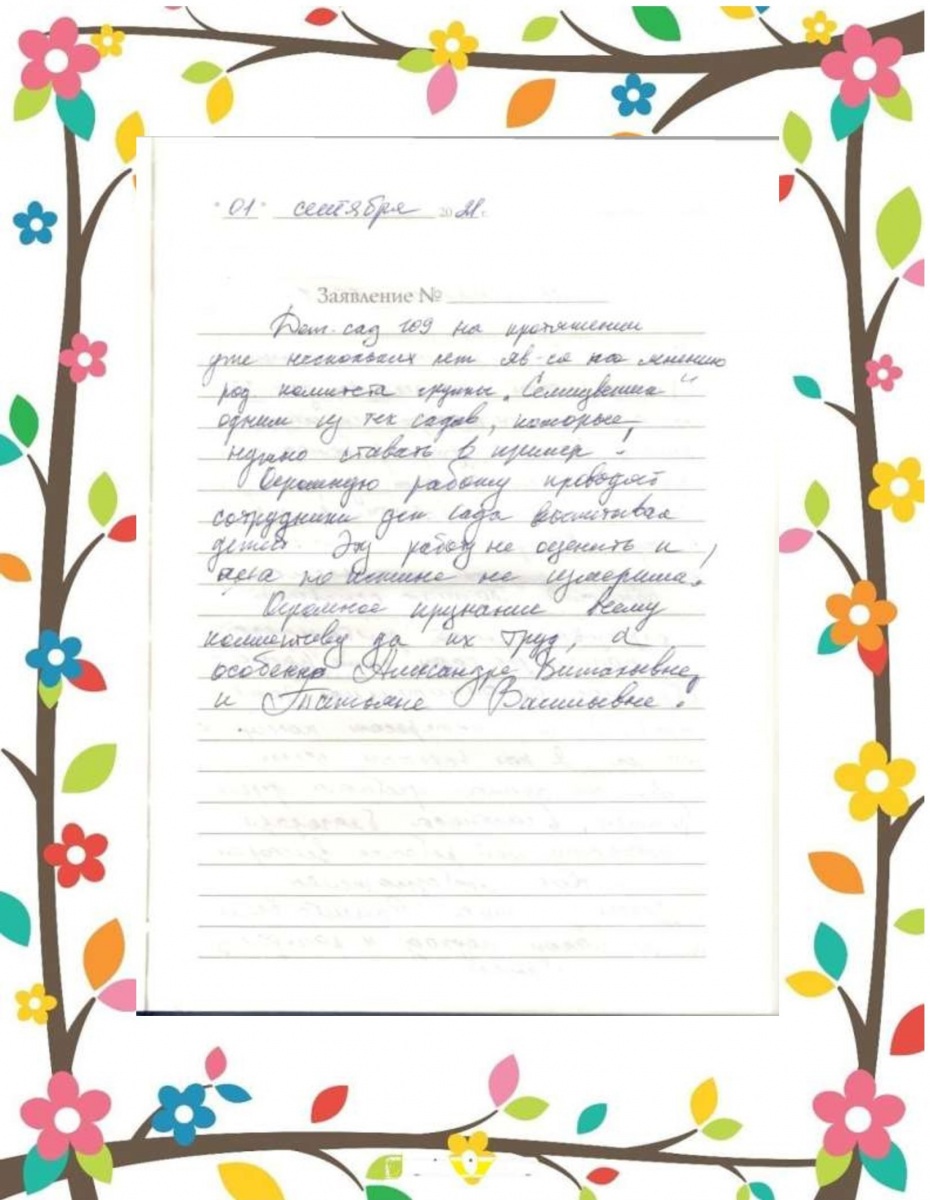 "01" сентября 2021 г.
Заявление №
Дет. сад 109 на протяжении
уже нескольких лет яв-ся по мнению
род. комитета группы „Семицветик“
одним из тех садов, которые
нужно ставать в пример!
Огромную работу проводят
сотрудники дет. сада воспитывая
детей. Эту работу не оценить и
по истине не измеришь!
Огромное признание всему
коллективу за их труд, а
особенно Александре Витальевне
и Татьяне Васильевне!